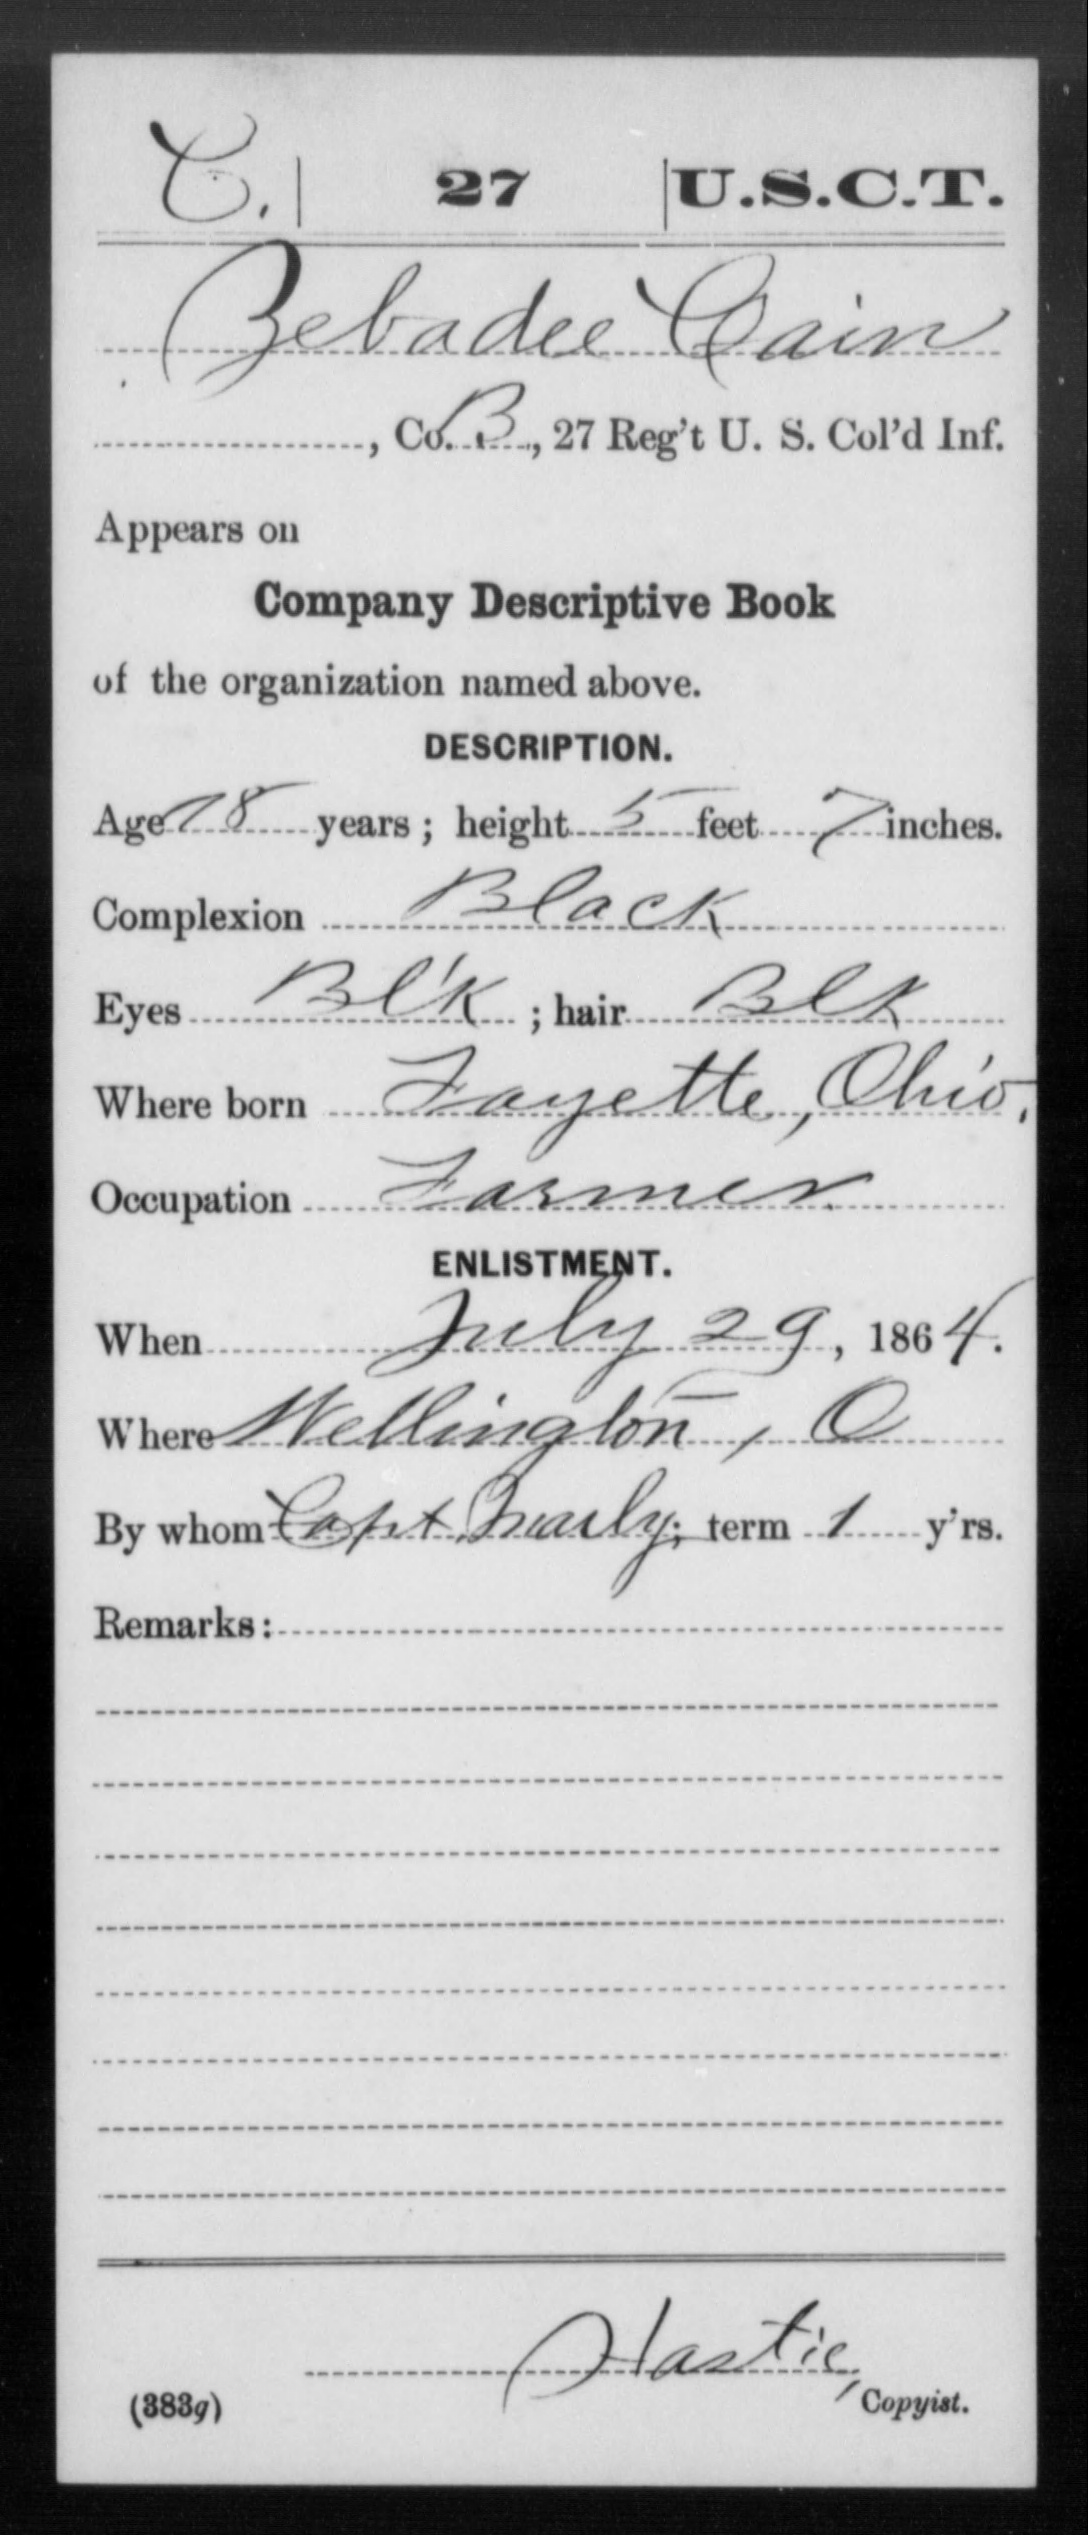 C. 27 U.S.C.T.
Zebadee Cain
, Co. B, 27 Reg't U. S. Col'd Inf.
Appears on
Company Descriptive Book
of the organization named above.
DESCRIPTION.
Age 18 years; height 5 feet 7 inches.
Complexion Black
Eyes Bl'k; hair Blk
Where born Fayette, Ohio.
Occupation Farmer
ENLISTMENT.
When July 29, 1864.
Where Wellington, O
By whom Capt ; term 1 y'rs.
Remarks:
Hastie,
(383g) Copyist.